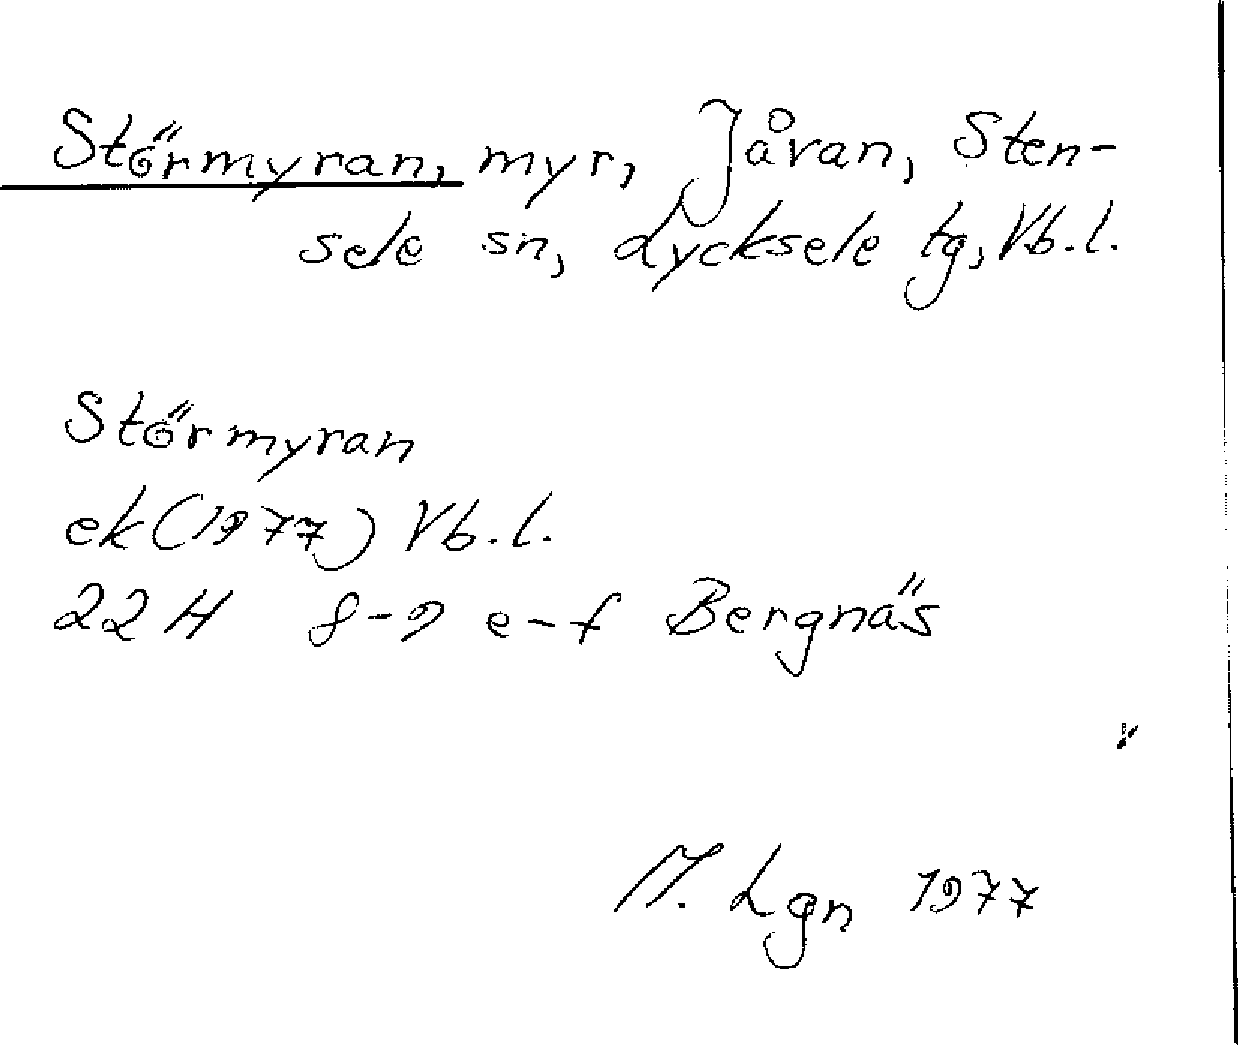 Störmyran, myr, Jåvan, Sten-
sele sn, Lycksele tg, Vb.l.
Störmyran
ek (1977) Vb.l.
22 H 8-9 e-f Bergnäs
M. Lgn 1977